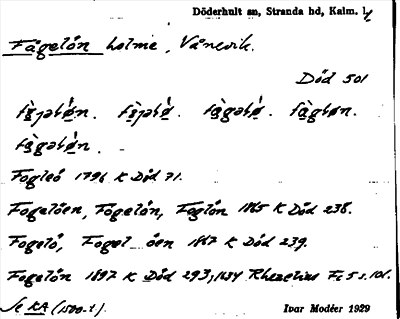 Döderhult sn, Stranda hd, Kalm. l.
Fågelön holme, Vånevik.
Död 501
Fogleö 1796 K Död 71.
Fogelöen, Fögelön, Foglön 1865 K Död 238.
Fogelö, Fogel öen 1867 K Död 239.
Fogelön 1897 K Död 293; 1634 Rhezelius Fc 5 s. 101.
Se KA (1500-t.)
Ivar Modéer 1929